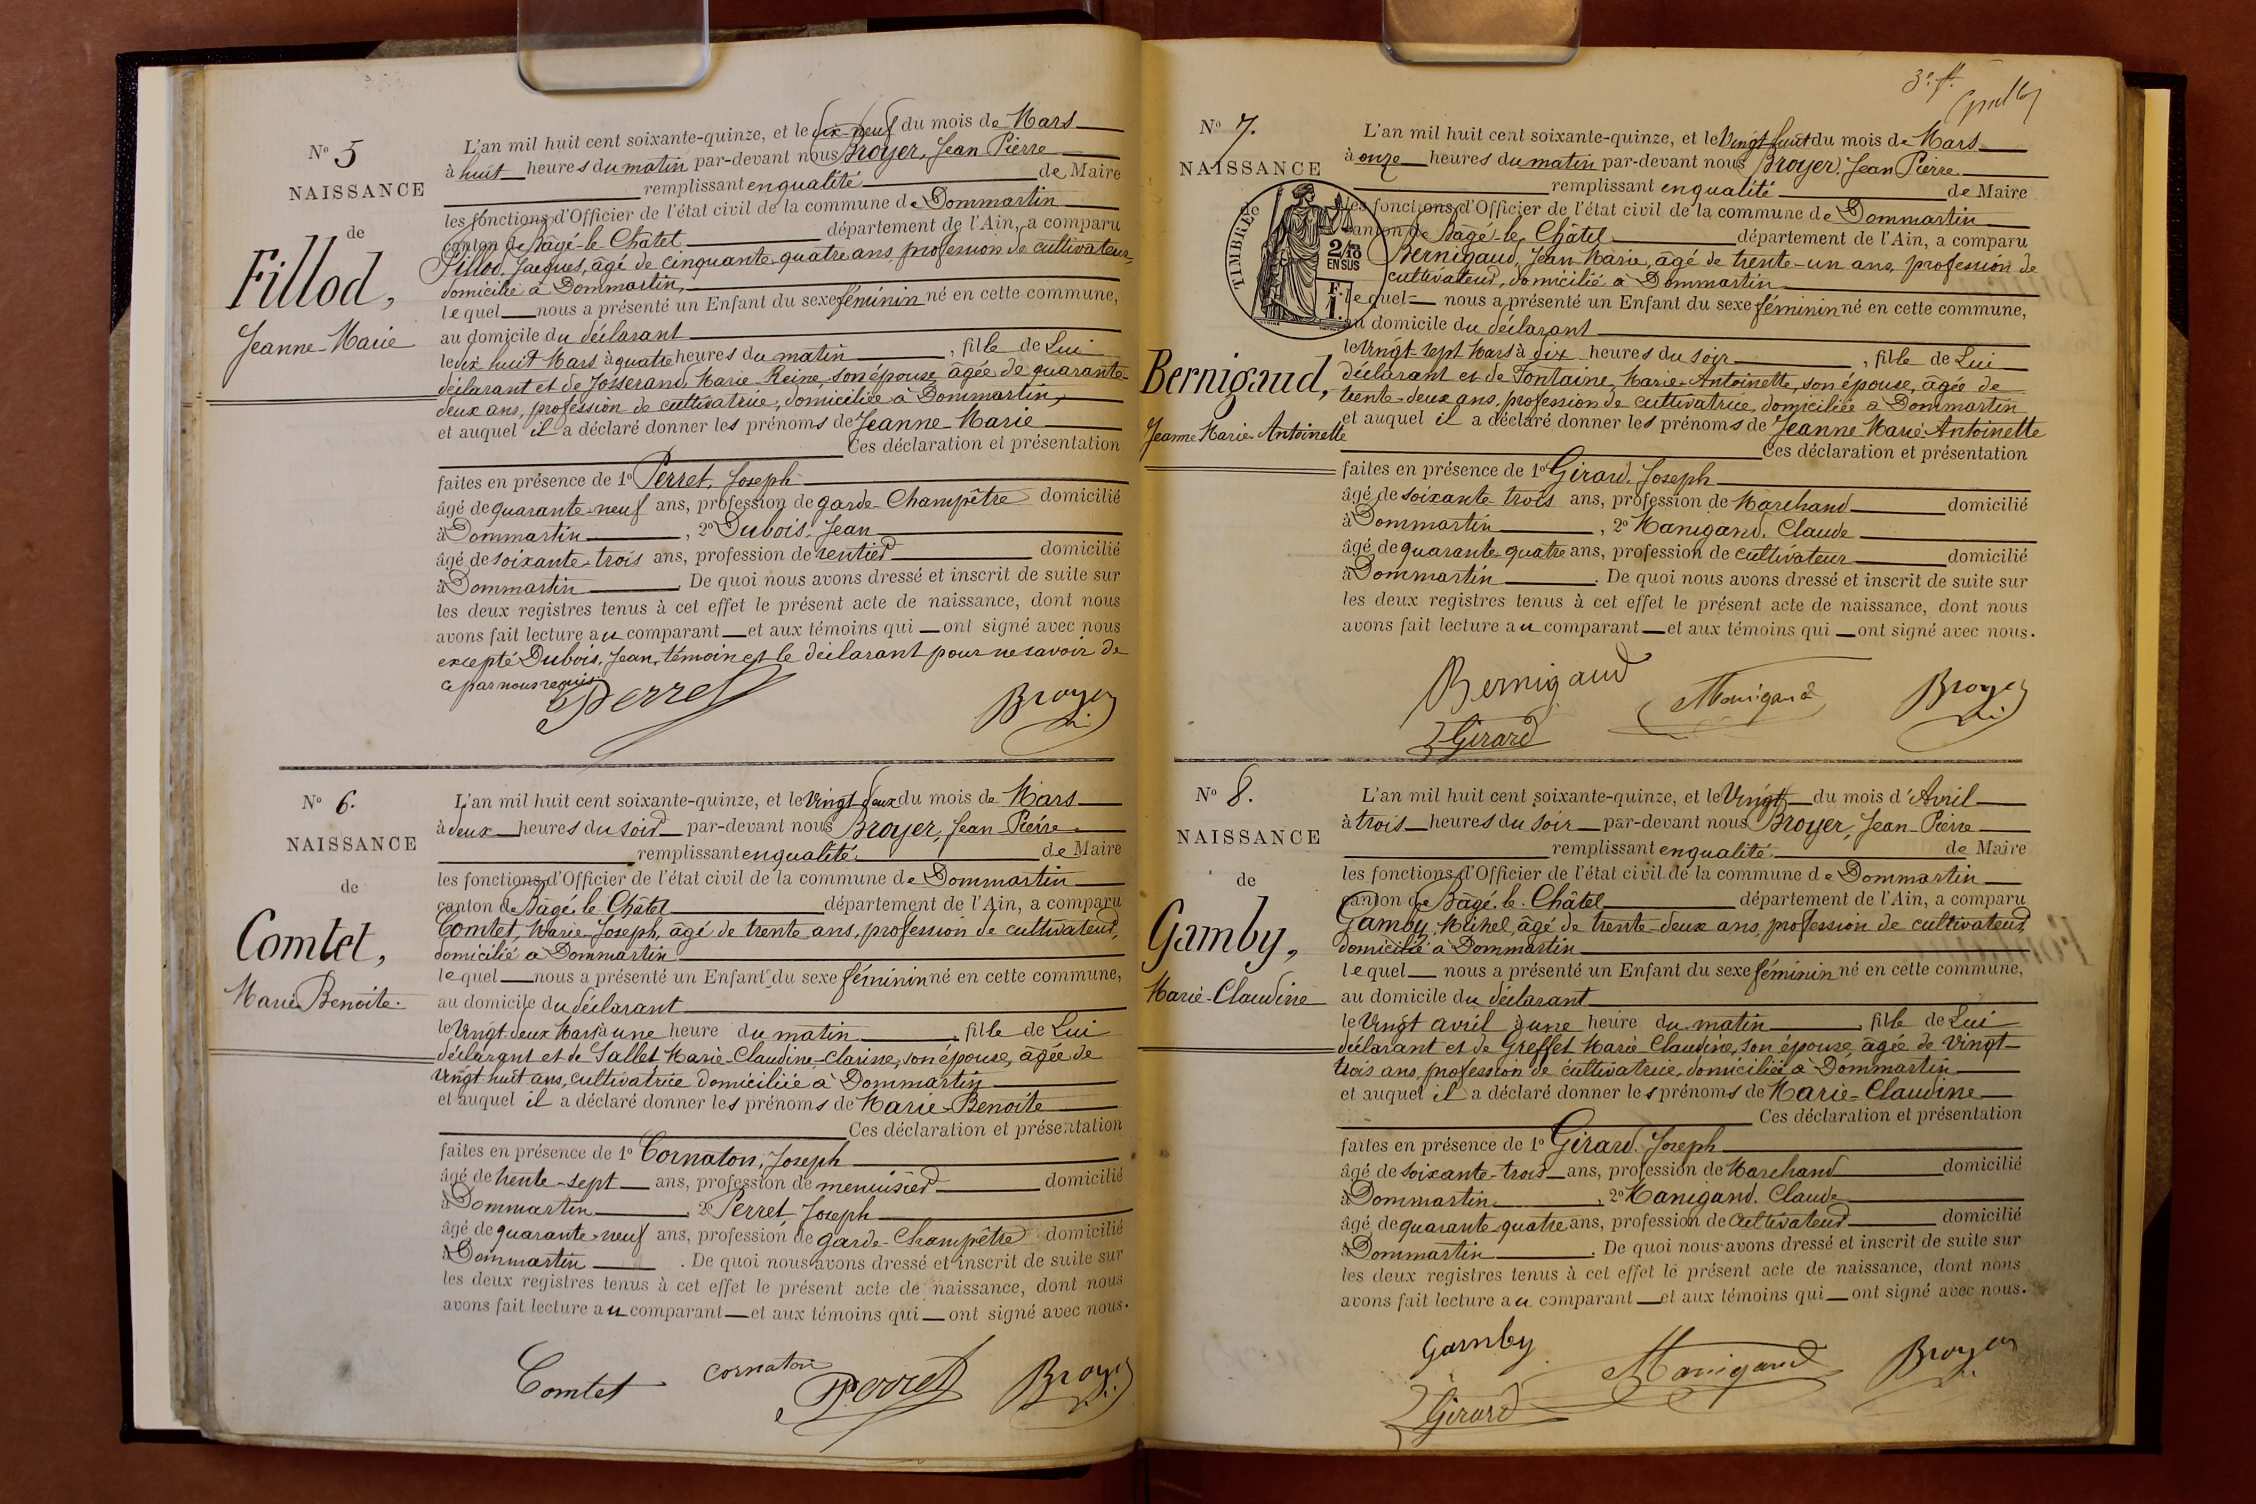 N° 5
NAISSANCE
de
Fillod,
Jeanne-Marie
L'an mil huit cent soixante-quinze, et le dix-neuf du mois de Mars
à huit heures du matin par-devant nous Broyer, Jean Pierre
remplissant en qualité de Maire
les fonctions d'Officier de l'état civil de la commune de Dommartin
canton de Bâgé-le Châtel département de l'Ain, a comparu
Fillod, Jacques, âgé de cinquante-quatre ans, profession de cultivateur,
domicilié à Dommartin,
lequel nous a présenté un Enfant du sexe féminin né en cette commune,
au domicile du déclarant
le dix huit Mars à quatre heures du matin, fille de Lui
déclarant et de Josserand Marie Reine, son épouse âgée de quarante-
deux ans, profession de cultivatrice, domiciliée à Dommartin,
et auquel il a déclaré donner les prénoms de Jeanne-Marie
Ces déclaration et présentation
faites en présence de 1° Perret, Joseph
âgé de quarante-neuf ans, profession de garde-Champêtre domicilié
à Dommartin, 2° Dubois, Jean
âgé de soixante-trois ans, profession de rentier domicilié
à Dommartin. De quoi nous avons dressé et inscrit de suite sur
les deux registres tenus à cet effet le présent acte de naissance, dont nous
avons fait lecture au comparant et aux témoins qui ont signé avec nous
excepté Dubois, Jean, témoin et le déclarant pour ne savoir de
ce par nous requis.
Perret Broyer
N° 6.
NAISSANCE
de
Comtet,
Marie Benoite.
L'an mil huit cent soixante-quinze, et le Vingt deux du mois de Mars
à deux heures du soir par-devant nous Broyer, Jean Pierre
remplissant en qualité de Maire
les fonctions d'Officier de l'état civil de la commune de Dommartin
canton de Bâgé le Châtel département de l'Ain, a comparu
Comtet, Marie-Joseph, âgé de trente ans, profession de cultivateur,
domicilié à Dommartin
lequel nous a présenté un Enfant du sexe féminin né en cette commune,
au domicile du déclarant
le Vingt deux Mars à une heure du matin, fille de Lui
déclarant et de Sallet Marie-Claudine-Clarisse, son épouse, âgée de
Vingt huit ans, cultivatrice domiciliée à Dommartin
et auquel il a déclaré donner les prénoms de Marie-Benoite
Ces déclaration et présentation
faites en présence de 1° Cornaton, Joseph
âgé de trente-sept ans, profession de menuisier domicilié
à Dommartin, 2° Perret, Joseph
âgé de quarante-neuf ans, profession de garde-Champêtre domicilié
à Dommartin. De quoi nous avons dressé et inscrit de suite sur
les deux registres tenus à cet effet le présent acte de naissance, dont nous
avons fait lecture au comparant et aux témoins qui ont signé avec nous.
Comtet Cornaton Perret Broyer
3e ft.
N° 7.
NAISSANCE
TIMBRE
2/10
EN SUS
F.
1.
Bernigaud,
Jeanne Marie-Antoinette
L'an mil huit cent soixante-quinze, et le Vingt huit du mois de Mars
à onze heures du matin par-devant nous Broyer, Jean Pierre
remplissant en qualité de Maire
les fonctions d'Officier de l'état civil de la commune de Dommartin
canton de Bâgé-le-Châtel département de l'Ain, a comparu
Bernigaud, Jean Marie, âgé de trente-un ans, profession de
cultivateur, domicilié à Dommartin
lequel nous a présenté un Enfant du sexe féminin né en cette commune,
au domicile du déclarant
le Vingt-sept Mars à dix heures du soir, fille de Lui
déclarant et de Fontaine, Marie-Antoinette, son épouse, âgée de
trente-deux ans, profession de cultivatrice, domiciliée à Dommartin
et auquel il a déclaré donner les prénoms de Jeanne Marie Antoinette
Ces déclaration et présentation
faites en présence de 1° Girard, Joseph
âgé de soixante trois ans, profession de Marchand domicilié
à Dommartin, 2° Manigand, Claude
âgé de quarante-quatre ans, profession de cultivateur domicilié
à Dommartin. De quoi nous avons dressé et inscrit de suite sur
les deux registres tenus à cet effet le présent acte de naissance, dont nous
avons fait lecture au comparant et aux témoins qui ont signé avec nous.
Bernigaud Manigand Broyer
Girard
N° 8.
NAISSANCE
de
Gamby,
Marie-Claudine
L'an mil huit cent soixante-quinze, et le Vingt du mois d'Avril
à trois heures du soir par-devant nous Broyer, Jean-Pierre
remplissant en qualité de Maire
les fonctions d'Officier de l'état civil de la commune de Dommartin
canton de Bâgé-le-Châtel département de l'Ain, a comparu
Gamby, Michel, âgé de trente-deux ans, profession de cultivateur,
domicilié à Dommartin
lequel nous a présenté un Enfant du sexe féminin né en cette commune,
au domicile du déclarant
le Vingt avril à une heure du matin, fille de Lui
déclarant et de Greffet Marie Claudine, son épouse âgée de Vingt-
trois ans, profession de cultivatrice, domiciliée à Dommartin
et auquel il a déclaré donner les prénoms de Marie-Claudine
Ces déclaration et présentation
faites en présence de 1° Girard, Joseph
âgé de soixante-trois ans, profession de Marchand domicilié
à Dommartin, 2° Manigand, Claude
âgé de quarante-quatre ans, profession de Cultivateur domicilié
à Dommartin. De quoi nous avons dressé et inscrit de suite sur
les deux registres tenus à cet effet le présent acte de naissance, dont nous
avons fait lecture au comparant et aux témoins qui ont signé avec nous.
Gamby Manigand Broyer
Girard